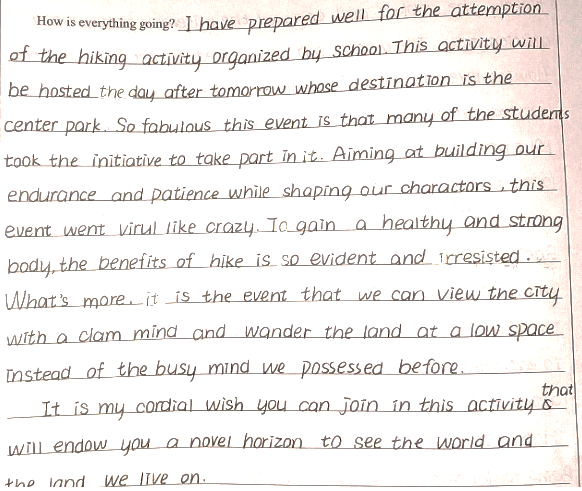 How is everything going? I have prepared well for the attemption
of the hiking activity organized by school. This activity will
be hosted the day after tomorrow whose destination is the
center park. So fabulous this event is that many of the students
took the initiative to take part in it. Aiming at building our
endurance and patience while shaping our charactors, this
event went virul like crazy. To gain a healthy and strong
body, the benefits of hike is so evident and irresisted.
What's more, it is the event that we can view the city
with a clam mind and wander the land at a low space
instead of the busy mind we possessed before.
It is my cordial wish you can join in this activity that
will endow you a novel horizon to see the world and
the land we live on.